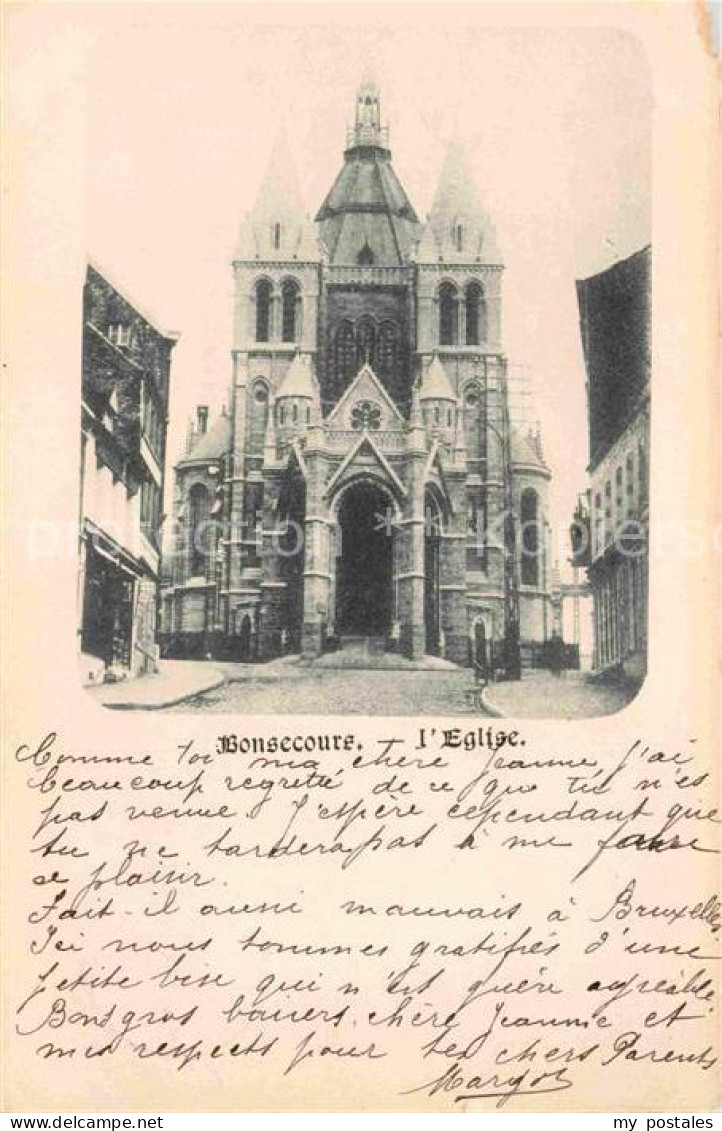 Bonsecours. l'Eglise.
Comme toi ma chère Jeanne j'ai
beaucoup regretté de ce que tu n'es
pas venue. J'espère cependant que
tu ne tarderas pas à me faire
ce plaisir.
Fait-il aussi mauvais à Bruxelles
Ici nous sommes gratifiés d'une
petite bise qui n'est guère agréable
Bons gros baisers, chère Jeanne et
mes respects pour tes chers Parents
Margot
Protection Kopers
my postales